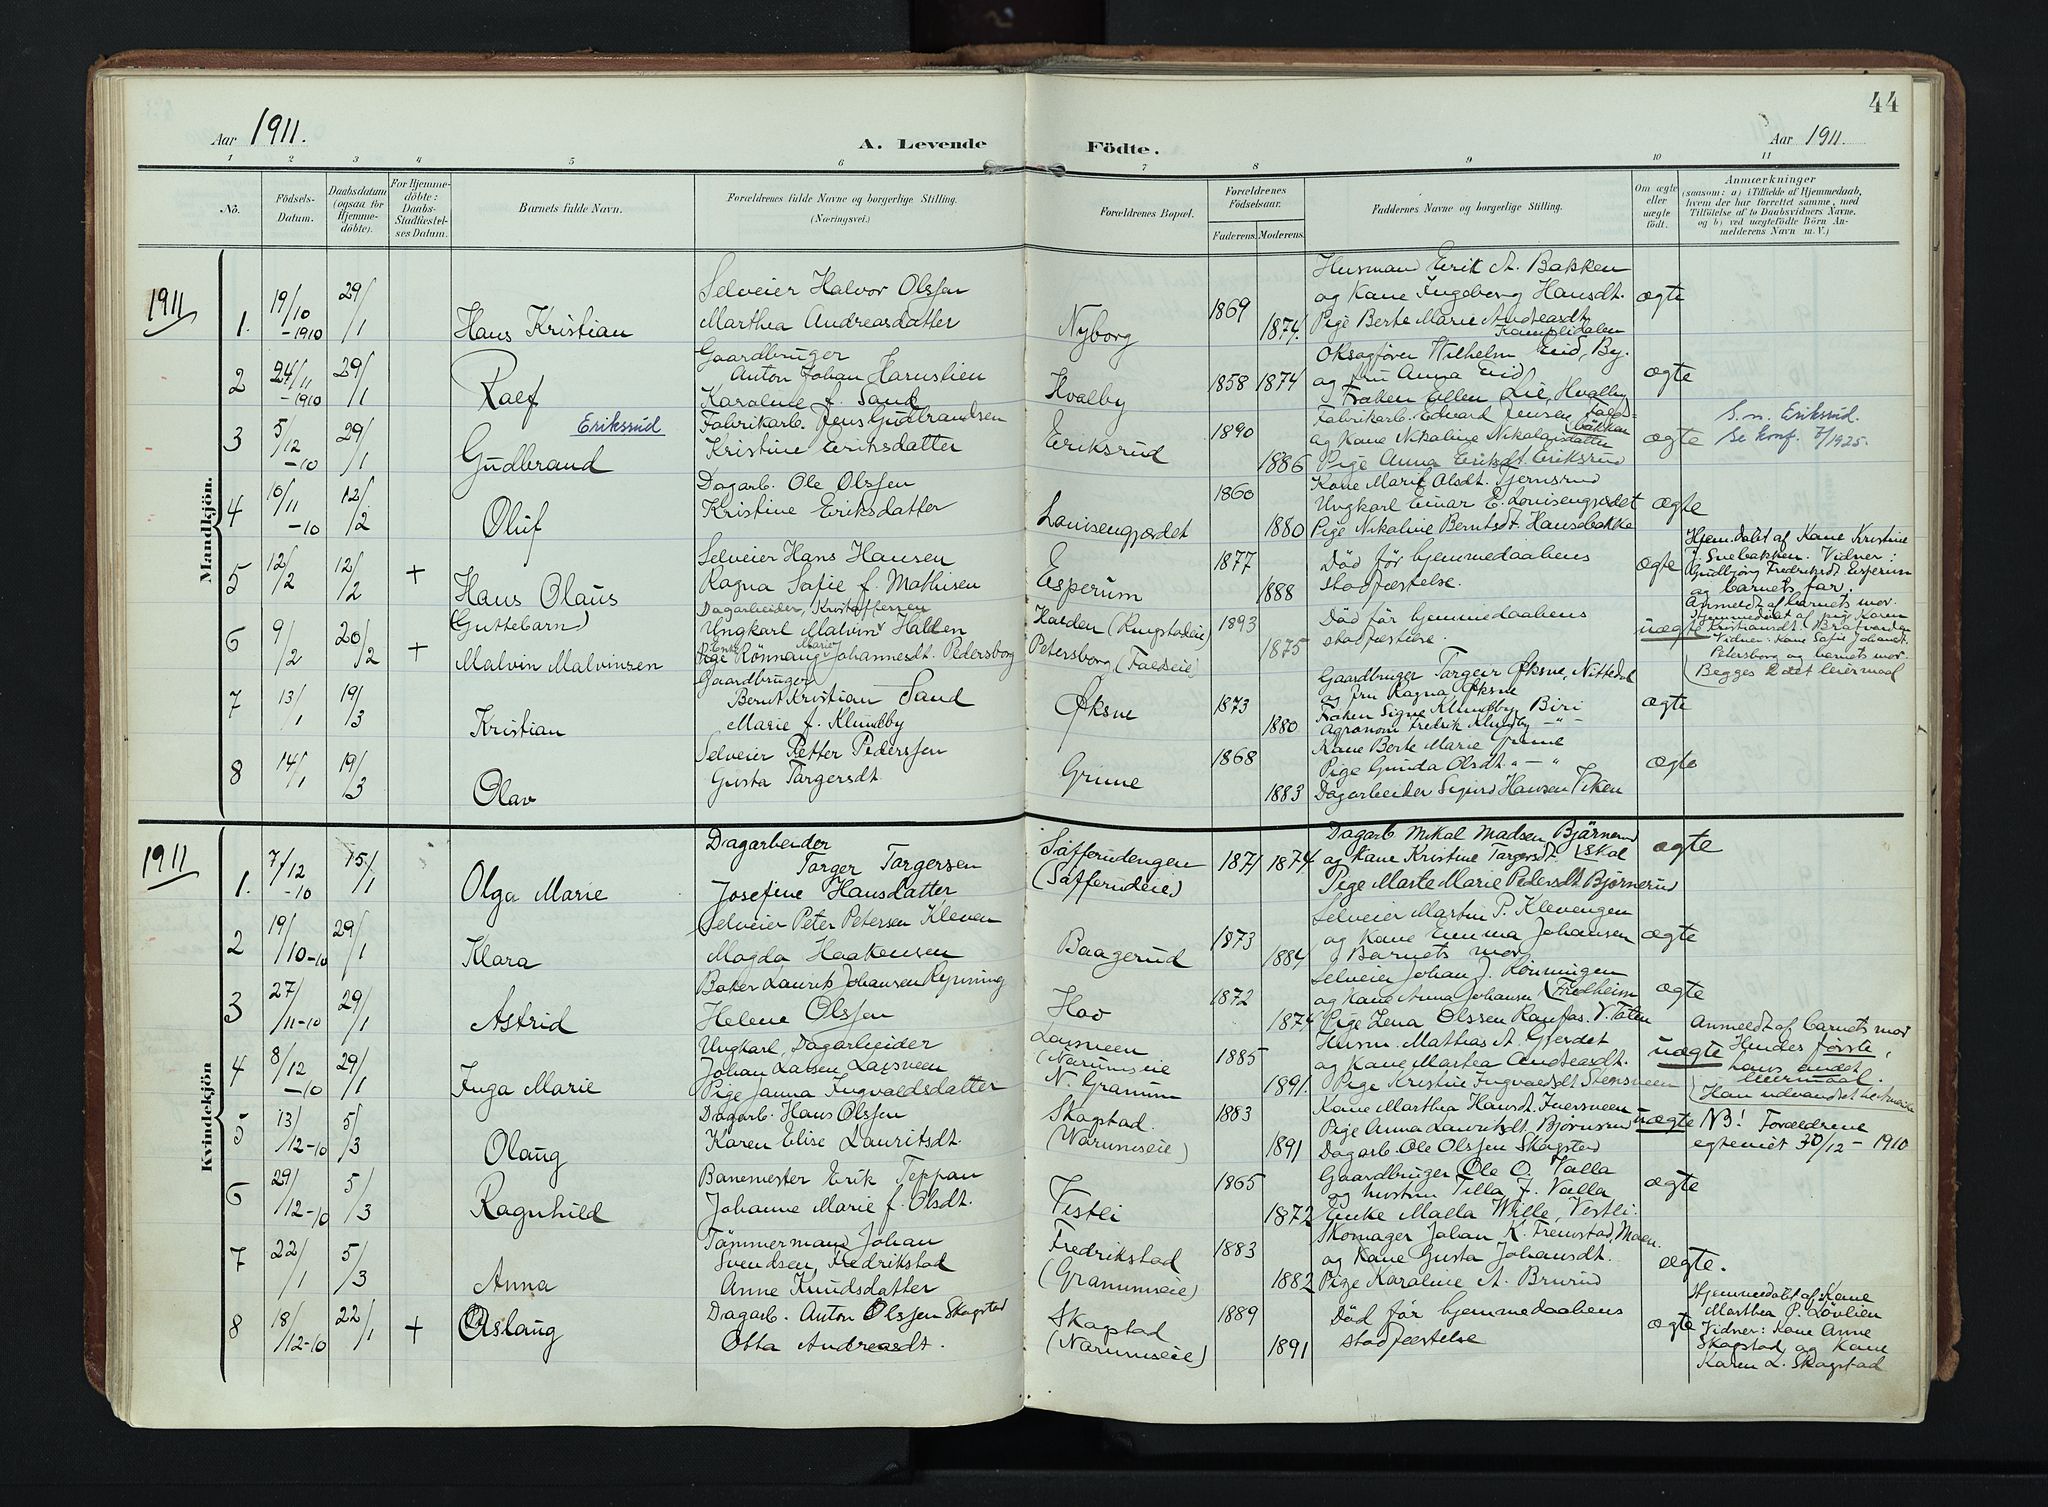 44
Aar 1911.
A. Levende Födte.
Aar 1911.
1 2 3 4 5 6 7 8 9 10 11
No.
Födsels-Datum.
Daabsdatum (ogsaa for Hjemme-döbte).
For Hjemme-döbte: Daabs-Stadfæstel-ses Datum.
Barnets fulde Navn.
Forældrenes fulde Navne og borgerlige Stilling. (Næringsvei.)
Forældrenes Bopæl.
Forældrenes Födselsaar.
Faderens. Moderens.
Faddernes Navne og borgerlige Stilling.
Om ægte eller uægte födt.
Anmærkninger
(saasom: a) i Tilfælde af Hjemmedaab, hvem der har forrettet samme, med Tilföielse af to Daabsvidners Navne, og b) ved uægtefödte Börn An-melderens Navn m. V.)
Mandkjön.
1911
1. 19/10 -1910 29/1 Hans Kristian
Selveier Halvor Olssen
Marthea Andreasdatter
Nyborg 1869 1874.
Husmand Erik A. Bakken
og Kane Ingeborg Hansdt.
Pige Berte Marie Andreasdt.
ægte
2 24/11 -1910 29/1 Rolf
Gaardbruger
Anton Johan Harustien
Karoline f. Sand
Hvalby 1858 1874
Oksagfører Wilhelm Eid, By.
og Fru Anna Eid
Frøken Ellen Lie, Hvalby
ægte
3 5/12 -10 29/1 Gudbrand Erikssrud
Fabrikarb. Jens Gudbrandsen
Kristine Eriksdatter
Eriksrud 1890 1886
Fabrikarb. Edvard Jensen
og Kane Nikoline Nikolaisdatter
Pige Anna Eriksdt. Eriksrud
ægte
S. n. Eriksrud.
Se konf. 7/1925.
4 10/11 -10 12/2 Oluf
Dagarb. Ole Olssen
Kristine Eriksdatter
Louisengjærdet 1860 1880
Kane Marie Olsdt. Tjernsrud
Ungkarl Einar E. Louisengjærdet
Pige Nikoline Berntsdt. Hansebakke
ægte
5 12/2 12/2 + Hans Olaus
(Guttebarn)
Selveier Hans Hansen
Ragna Safie f. Mathisen
Esperum 1877 1888
Død før hjemmedaabens
stadfæstelse.
ægte
Hjem.døbt af Kane Kristine
J. Snebakken. Vidner:
Gudbjørg Fredriksdt. Esperum
og barnets far.
6 9/2 20/2 + Malvin Malvinsen
Dagarbeider, Kristoffersen
Ungkarl Malvin Halden
Pige Rönnaug Marie Johannesdt. Pedersborg
Halden (Ringstadeie)
Petersborg (Falseie) 1893 1875
Død før hjemmedaabens
stadfæstelse.
uægte
Anmeldt af barnets mor.
Hjemmedøbt af Pige Karen
Kristiansdt. (Bratvarden
Vidner: Kane Safie Johansdt.
Petersborg og barnets mor.
Begges 2det leiermaal
7 13/1 19/3 Kristian
Gaardbruger
Bernt Kristian Sand
Marie f. Klundby
Øksne 1873 1880
Gaardbruger Targeir Øksne, Nittedal
og Fru Ragna Øksne
Frøken Signe Klundby Biri
Agronom Fredrik Klundby -"-
ægte
8 14/1 19/3 Olav
Selveier Petter Pederssen
Gusta Targersdt.
Grime 1868 1883
Kane Berte Marie Grime
Pige Gunda Olsdt. "-"
Dagarbeider Sigurd Hansen Viken
ægte
Kvindekjön
1911
1. 7/12 -10 15/1 Olga Marie
Dagarbeider
Targer Targersen
Josefine Hansdatter
Safferudengen
(Safferudeie) 1871 1874
Dagarb. Mikal Madsen Bjørnerud
og Kane Kristine Targersdt. Skol
Pige Marte Marie Pedersdt. Bjørnerud
ægte
2 19/10-10 29/1 Klara
Selveier Peter Petersen Kleven
Magda Haakensen
Baagerud 1873 1884
Selveier Martin P. Klevengen
og Kane Emma Johansen
Barnets mor
ægte
3 27/11-10 29/1 Astrid
Baker Laurits Johansen Rypning
Helene Olssen
Hov 1872 1874
Selveier Johan J. Rönningen
og Kane Anna Johansen Fredheim
Pige Lena Olssen Raufos. V. Toten
ægte
4 8/12 -10 29/1 Inga Marie
Ungkarl, Dagarbeider
Johan Larsen Larsveen
Pige Janna Ingvaldsdatter
Larsveen
(Narumseie
N. Granum 1885 1891.
Husm. Mathias A. Gjerdet
og Kane Martea Andreasdt.
Pige Kristine Ingvaldsdt. Stensveen
uægte
Anmeldt af barnets mor
Hendes første,
hans andet
leiermaal.
(Han udvandret til Amerika
5 13/12-10 5/3 Olaug
Dagarb. Hans Olssen
Karen Elise Lauritsdt.
Skogstad.
(Narumseie) 1883 1891
Kane Marthea Hansdt. Iversveen
Pige Anna Lauritsdt. Bjørnsrud
Dagarb. Ole Olssen Skogstad
uægte
NB! Forældrene
egteviet 30/12 - 1910
6 29/12-10 5/3 Ragnhild
Banemester Erik Teppan
Johanne Marie f. Olsdt.
Vestli 1865 1872
Gaardbruger Ole O. Valla
og hustru Tilla J. Valla
Enke Malla Wille, Vestli.
ægte
7 22/1 5/3 Anna
Tömmermand Johan
Svendsen, Fredrikstad
Anne Knudsdatter
Fredrikstad
(Granumseie) 1883 1882
Skomager Johan K. Fremstad, Moen.
og Kane Gusta Johansdt.
Pige Karoline A. Brurud
ægte.
8 18/12-10 22/1 + Aslaug
Dagarb. Anton Olssen Skogstad
Otta Andreasdt.
Skogstad
(Narumseie) 1889 1891
Död før hjemmedaabens
stadfæstelse
ægte
Hjemmedøbt af Kane
Marthea P. Løvlien
Vidner: Kane Anne
Skogstad, og Kane
Karen L. Skogstad